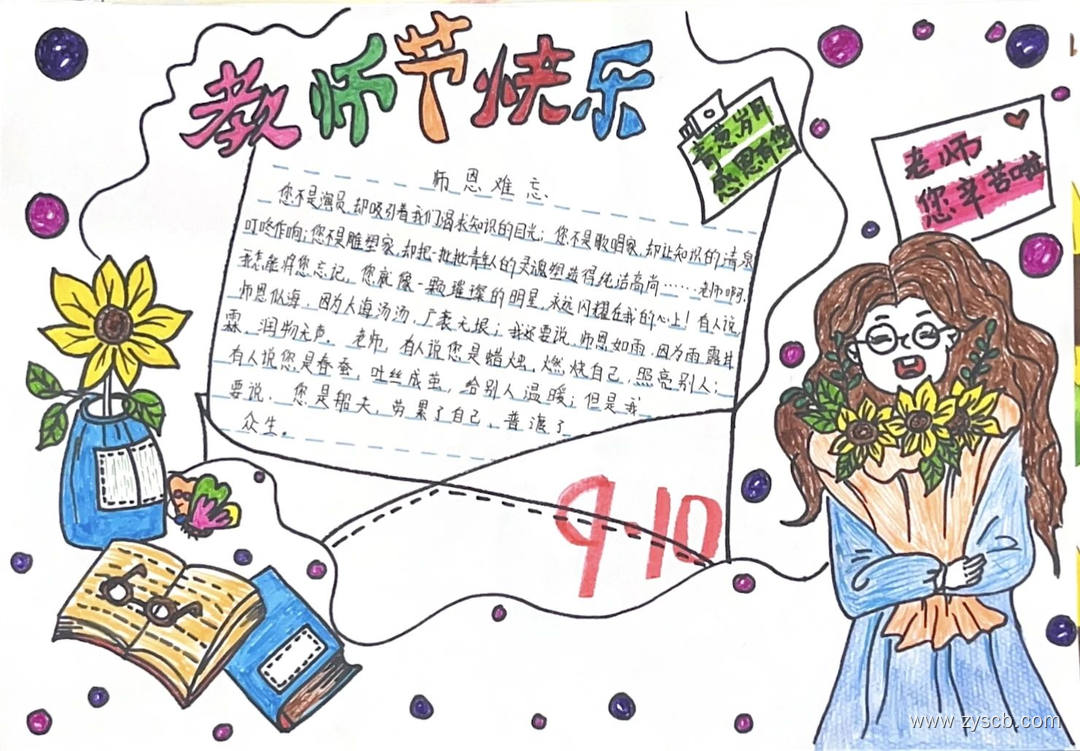 教师节快乐
青葱岁月
感恩有您
老师
您辛苦啦
师恩难忘
您不是演员,却吸引着我们渴求知识的目光;您不是歌唱家,却让知识的清泉
叮咚作响;您不是雕塑家,却把一批批青年人的灵魂塑造得纯洁高尚……老师啊,
我怎能将您忘记,您就像一颗璀璨的明星,永远闪耀在我的心上!有人说
师恩似海,因为大海汤汤,广袤无垠;我还要说,师恩如雨,因为雨露甘
霖,润物无声。老师,有人说您是蜡烛,燃烧自己,照亮别人;
有人说您是春蚕,吐丝成茧,给别人温暖;但是我
要说,您是船夫,劳累了自己,普渡了
众生。
9·10
www.zyscb.com